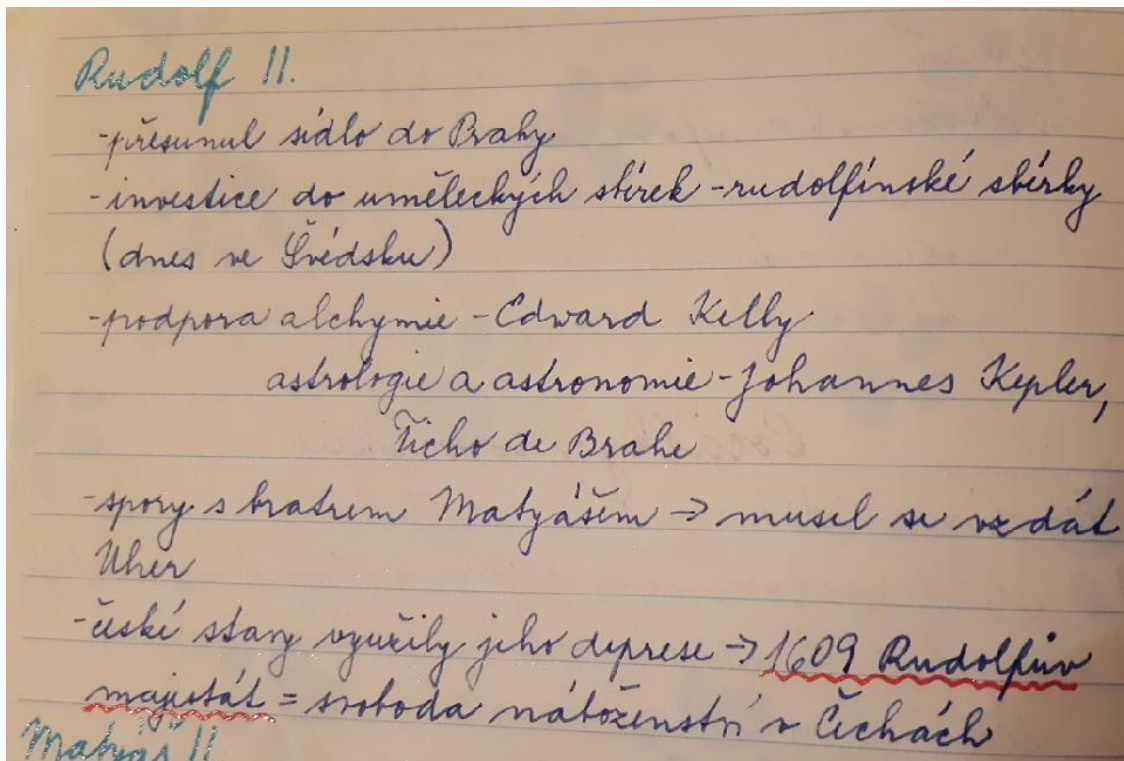 Rudolf II.
-přesunul sídlo do Prahy
-investice do uměleckých sbírek-rudolfínské sbírky
(dnes ve Švédsku)
-podpora alchymie-Edward Kelly
astrologie a astronomie-Johannes Kepler,
Ticho de Brahe
-spory s bratrem Matyášem → musel se vzdát
Uher
-české stavy využily jeho deprese → 1609 Rudolfův
majestát = svoboda náboženství v Čechách
Matyáš II.